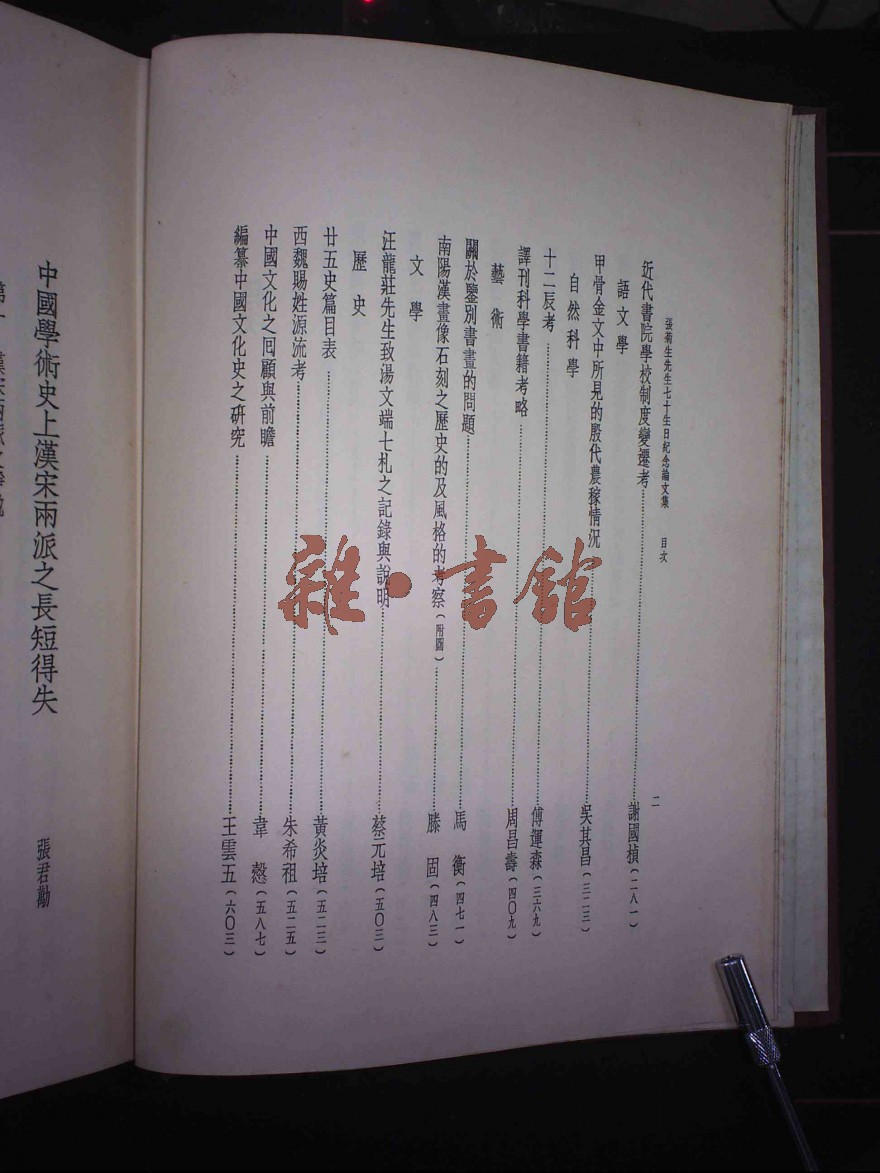 張菊生先生七十生日紀念論文集 目次
二
近代書院學校制度變遷考 謝國楨(二八一)
語文學
甲骨金文中所見的殷代農稼情況 吳其昌(三二三)
自然科學
十二辰考 傅運森(三六九)
譯刊科學書籍考略 周昌壽(四〇九)
藝術
關於鑒別書畫的問題 馬衡(四七一)
南陽漢畫像石刻之歷史的及風格的考察(附圖) 滕固(四八三)
文學
汪龍莊先生致湯文端七札之記錄與說明 蔡元培(五〇三)
歷史
廿五史篇目表 黃炎培(五二三)
西魏賜姓源流考 朱希祖(五二五)
中國文化之回顧與前瞻 韋愨(五八七)
編纂中國文化史之研究 王雲五(六〇三)
中國學術史上漢宋兩派之長短得失
張君勱
雜·書館